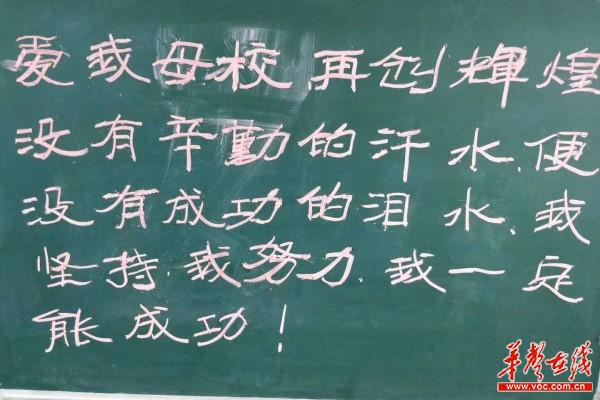 爱我母校再创辉煌
没有辛勤的汗水,便
没有成功的泪水、我
坚持我努力、我一定
能成功!
华声在线
www.voc.com.cn